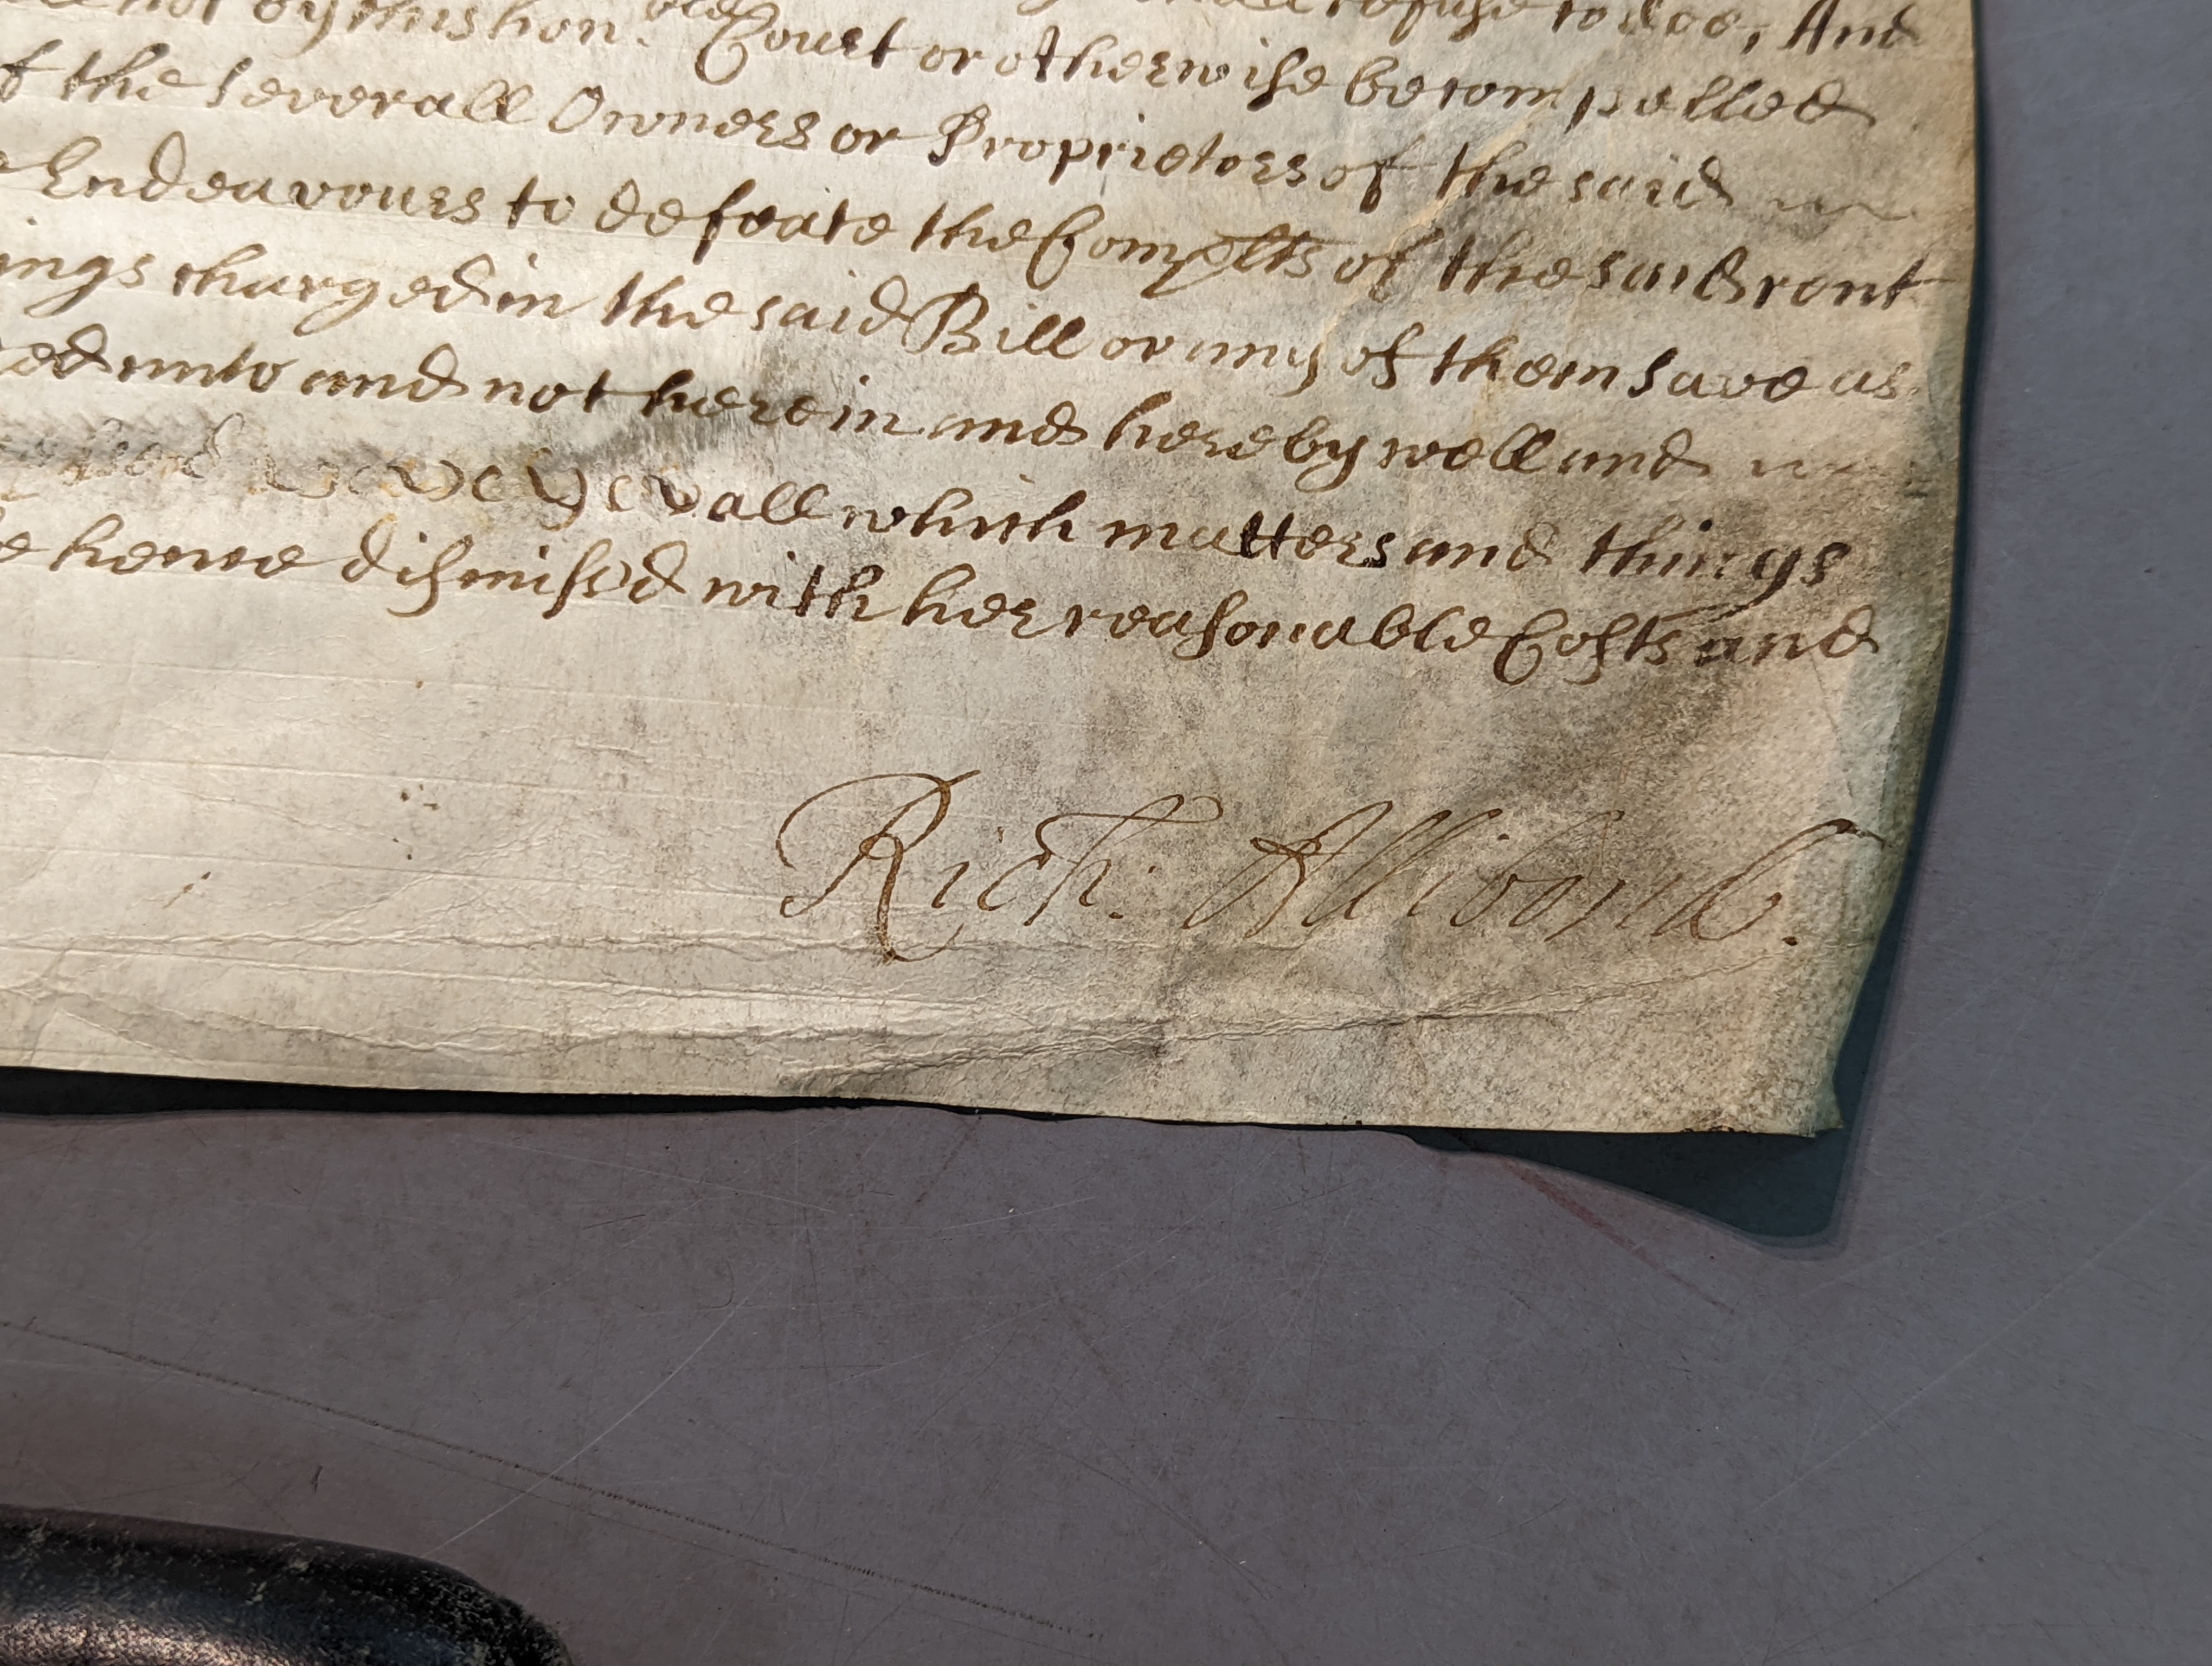 not by this hon.ble Court or otherwise be compelled
refuse to doe, And
the severall Owners or Proprietors of the said
Endeavours to defeate the Complts of the said rent
ings charged in the said Bill or any of them save as
ed unto and not herein and hereby well and
all which matters and things
hence dismissed with her reasonable Costs and
Rich: Allibond.